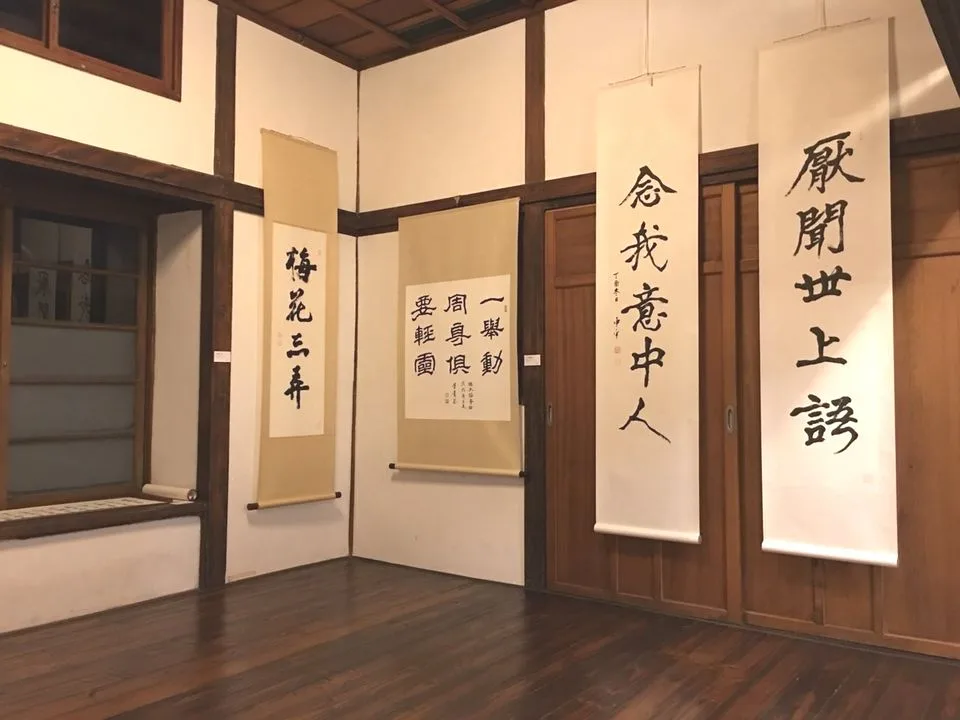 厭聞世上語
念我意中人
丁酉
一舉動
周身俱
要輕靈
梅花三弄